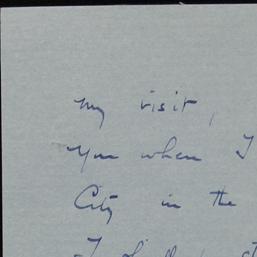 my visit,
you when I
City in the
I